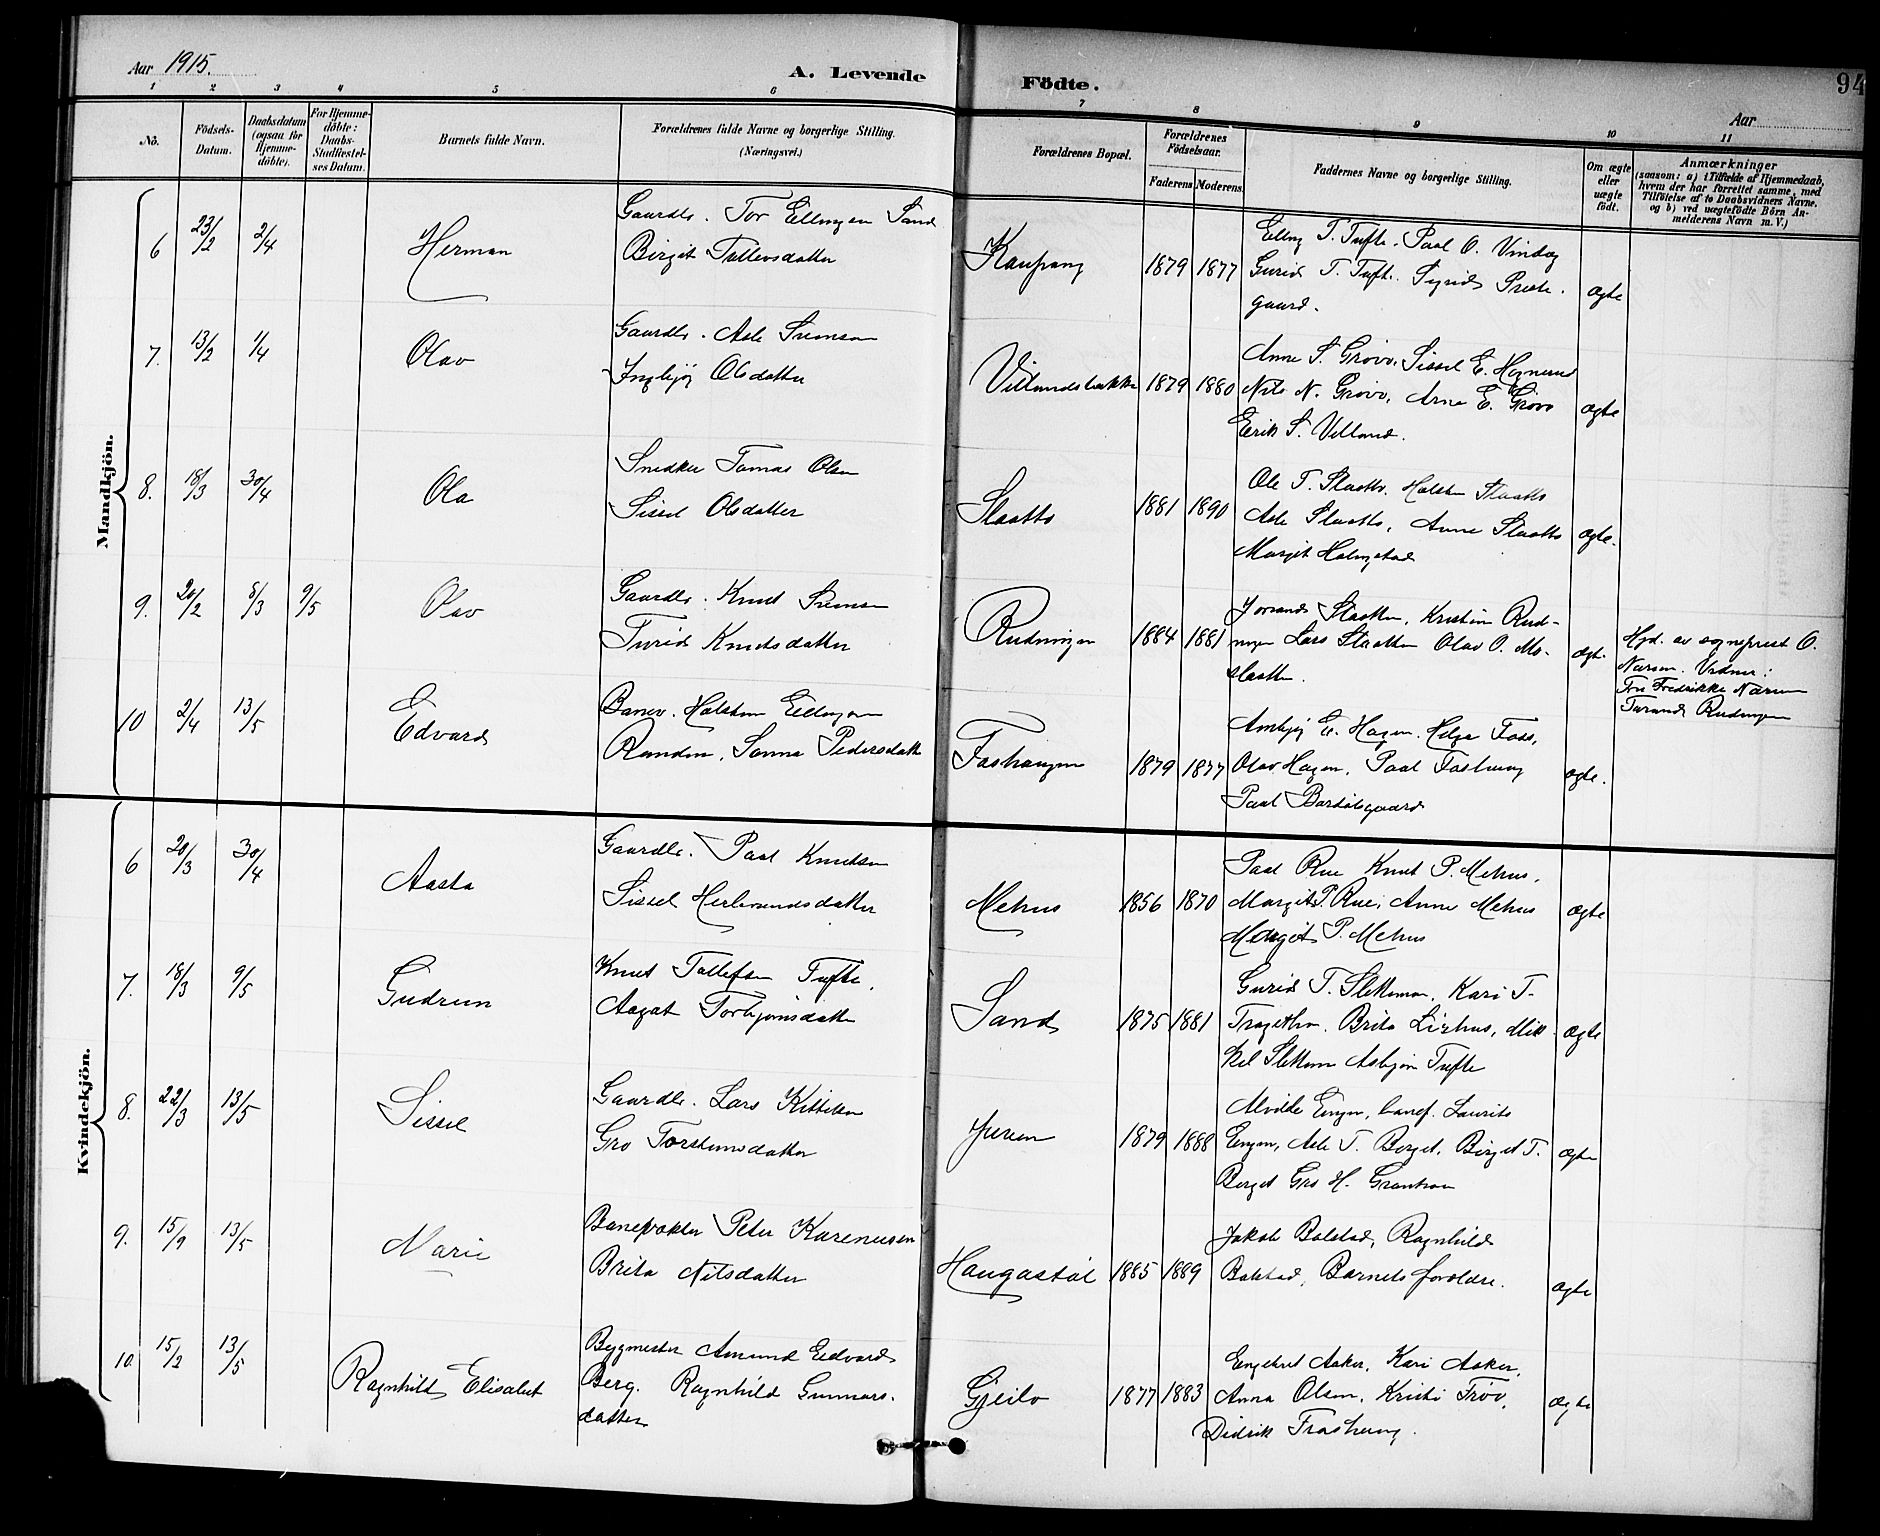 Aar 1915.
A. Levende Födte.
94
Aar
1 2 3 4 5 6 7 8 9 10 11
No.
Födsels-Datum.
Daabsdatum (ogsaa for Hjemme-döbte).
For Hjemme-döbte: Daabs-Stadfæstel-ses Datum.
Barnets fulde Navn.
Forældrenes fulde Navne og borgerlige Stilling.
(Næringsvei.)
Forældrenes Bopæl.
Forældrenes Födselsaar.
Faderens Moderens
Faddernes Navne og borgerlige Stilling.
Om ægte eller uægte födt.
Anmærkninger
(saasom: a) i Tilfælde af Hjemmedaab,
hvem der har forrettet samme, med
Tilföielse af to Daabsvidners Navne.
og b) ved uægtefödte Börn An-
melderens Navn m. V.)
Mandkjön.
6 23/2 2/4 Herman
Gaardbr. Tor Ellingsen Sand
Birgit Tollevsdatter
Kaupang 1879 1877
Elling T. Tufte. Paal O. Vindeg
Gurid T. Tufte. Sygrid Preste-
gaard.
ægte
7. 13/2 1/4 Olav
Gaardbr. Asle Svensen
Ingebjög Olsdatter
Villandsbakke 1879 1880
Anne S. Grövo, Sissel E. Högnerud
Nils N. Grövo, Arne E. Grövo
Erik S. Villand.
ægte
8. 18/3 30/4 Ola
Snedker Tomas Olsen
Sissel Olsdatter
Slaatto 1881 1890
Ole T. Slaatto. Halsten Slaatto
Asle Slaatto, Anne Slaatto
Margit Holmgstad
ægte.
9. 20/2 8/3 9/5 Olav
Gaardbr. Knut Svensen
Turid Knutsdatter
Rudningen 1884 1881
Jorand Slaatten, Kristin Rud-
ningen Lars Slaatten Olav O. Mo-
slaatten.
ægte.
Hjd. av sogneprest O.
Nærson. Vidner:
Fru Fredrikke Næson
Tarand Rudningen
10 2/4 13/5 Edvard
Banev. Halsten Ellingsen
Randen, Sanna Pedersdatter
Foshaugen 1879 1877
Ambjög E. Hagen. Helga Foss,
Olav Hagen, Paal Foshaug
Paal Bardolsgaard
ægte.
Kvindekjön.
6 20/3 30/4 Aasta
Gaardbr. Paal Knutsen
Sissel Herbrandsdatter
Mehus 1856 1870
Paal Rue Knut P. Mehus,
Margit P. Rue, Anne Mehus
Margit P. Mehus
ægte
7. 18/3 9/5 Gudrun
Knut Tollefsen Tufte,
Aagot Torbjörnsdatter
Sand 1875 1881
Gurid T. Slettemoen, Kari T.
Trageton. Brita Lirhus, Mik-
kel Slettemoen Asbjörn Tufte
ægte
8. 22/3 13/5 Sissel
Gaardbr. Lars Kittilsen
Gro Torstensdatter
1879 1888
Alvilde Engen, banef. Laurits
Engen, Asle T. Berget, Birgit T.
Berget Gro H.
ægte
9. 15/9 13/5 Marie
Banevokter Peter Kareniusen
Brita Nilsdatter
Haugastöl 1885 1889
Jakob Bolstad, Ragnhild
Bolstad, Barnets foreldre.
ægte
10. 15/2 13/5 Ragnhild Elisabet
Bygmester Amund Edvard
Berg. Ragnhild Gunnars-
datter
Gjeilo 1877 1883
Engebret Aaker, Kari Aaker,
Anna Olsen, Kristi Tröv,
Didrik
ægte